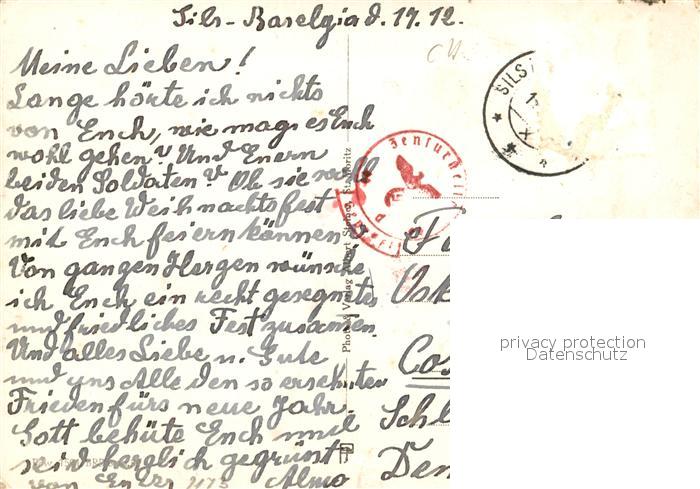 Sils-Baselgia d. 17. 12.
Meine Lieben!
Lange hörte ich nichts
von Euch, wie mag es Euch
wohl gehen? Und Euern
beiden Soldaten? Ob sie wohl
das liebe Weihnachtsfest
mit Euch feiern können?
Von ganzen Herzen wünsche
ich Euch ein recht gesegnetes
und friedliches Fest zusammen.
Und alles Liebe u. Gute
und uns Alle den so ersehnten
Frieden fürs neue Jahr.
Gott behüte Euch und
seid herzlich gegrüsst
von Eurer
4173
SILS
Photo & Verlag Albert Steiner, St. Moritz
privacy protection
Datenschutz